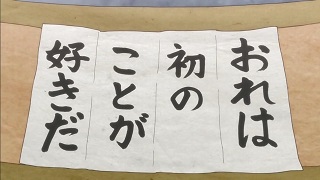 おれは
初の
ことが
好きだ